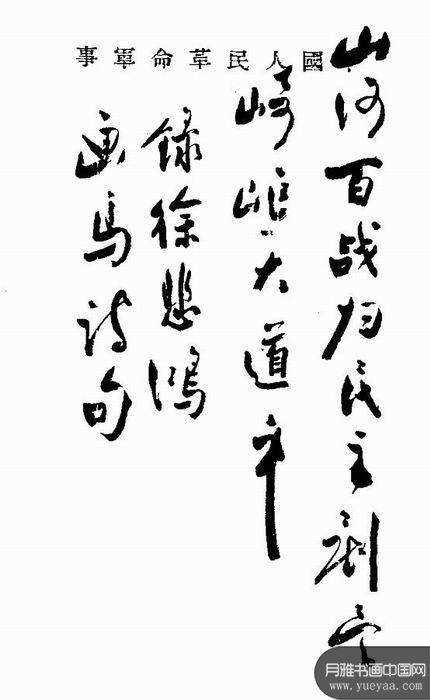 國人民革命軍事
山河百战归民主剷尽
崎岖大道平
録徐悲鸿
画马诗句
月雅书画中国网
www.yueyaa.com